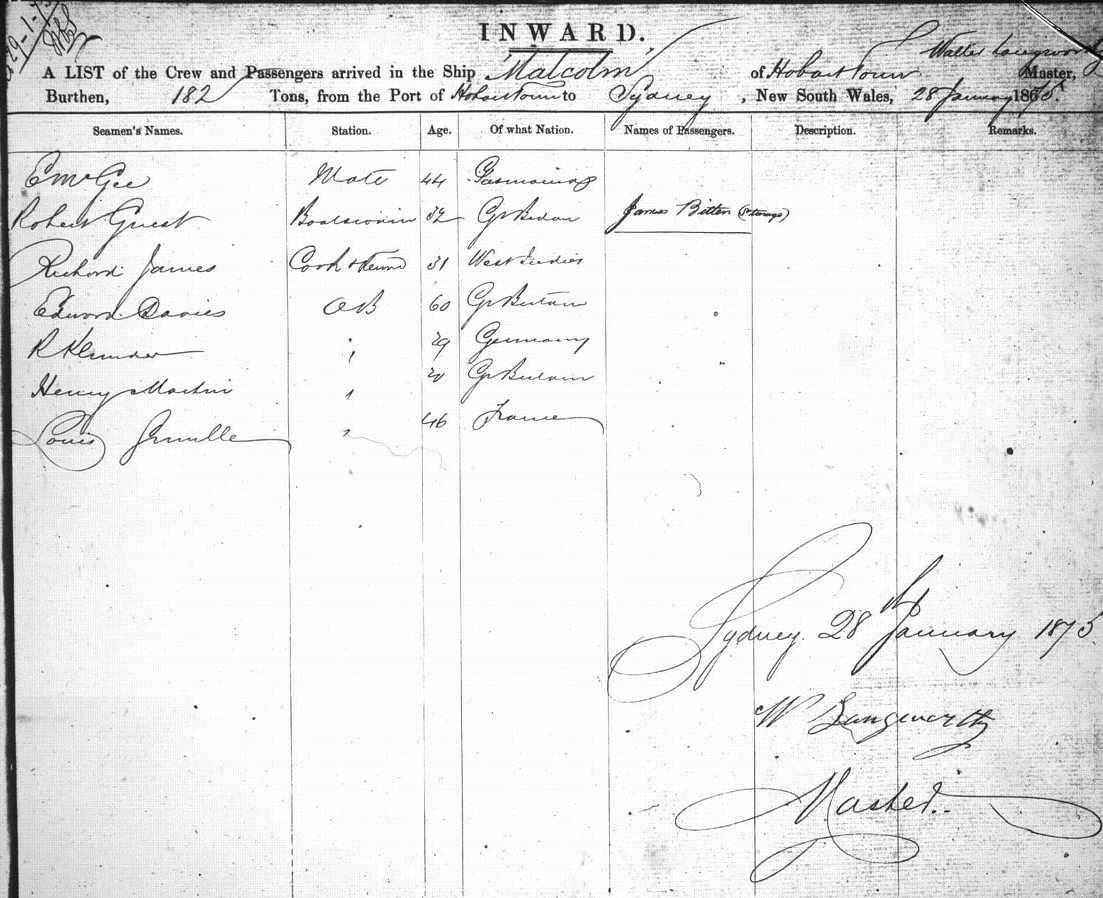 29-1-75
INWARD.
A LIST of the Crew and Passengers arrived in the Ship Malcolm of Hobart Town Walter Langworthy Master,
Burthen, 182 Tons, from the Port of Hobart Town to Sydney, New South Wales, 28 January 1875.
Seamen's Names. Station. Age. Of what Nation. Names of Passengers. Description. Remarks.
E McGee Mate 44 Tasmania
Robert Guest Boatswain 32 Gt Britain James Bitten
Richard James Cook & Stewd 31 West Indies
Edward Davies AB 60 Gt Britain
R " 29 Germany
Henry Martin " 20 Gt Britain
Louis " 46 France
Sydney 28th January 1875
W Langworthy
Master